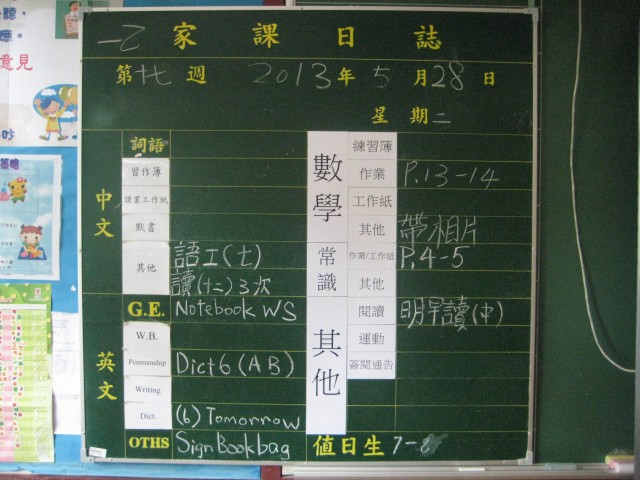 一乙 家課日誌
第十七週 2013年5月28日
星期二
中文
詞語
習作簿
課業工作紙
默書
其他 語工(七)
讀(十二)3次
英文
G.E. Notebook WS
W.B.
Penmanship Dict 6 (AB)
Writing
Dict. (6) Tomorrow
OTHS Sign Bookbag
數學
練習簿
作業 P.13-14
工作紙
其他 帶相片
常識
作業/工作紙 P.4-5
其他
其他
閱讀 明早讀(中)
運動
簽閱通告
值日生 7-8
意見